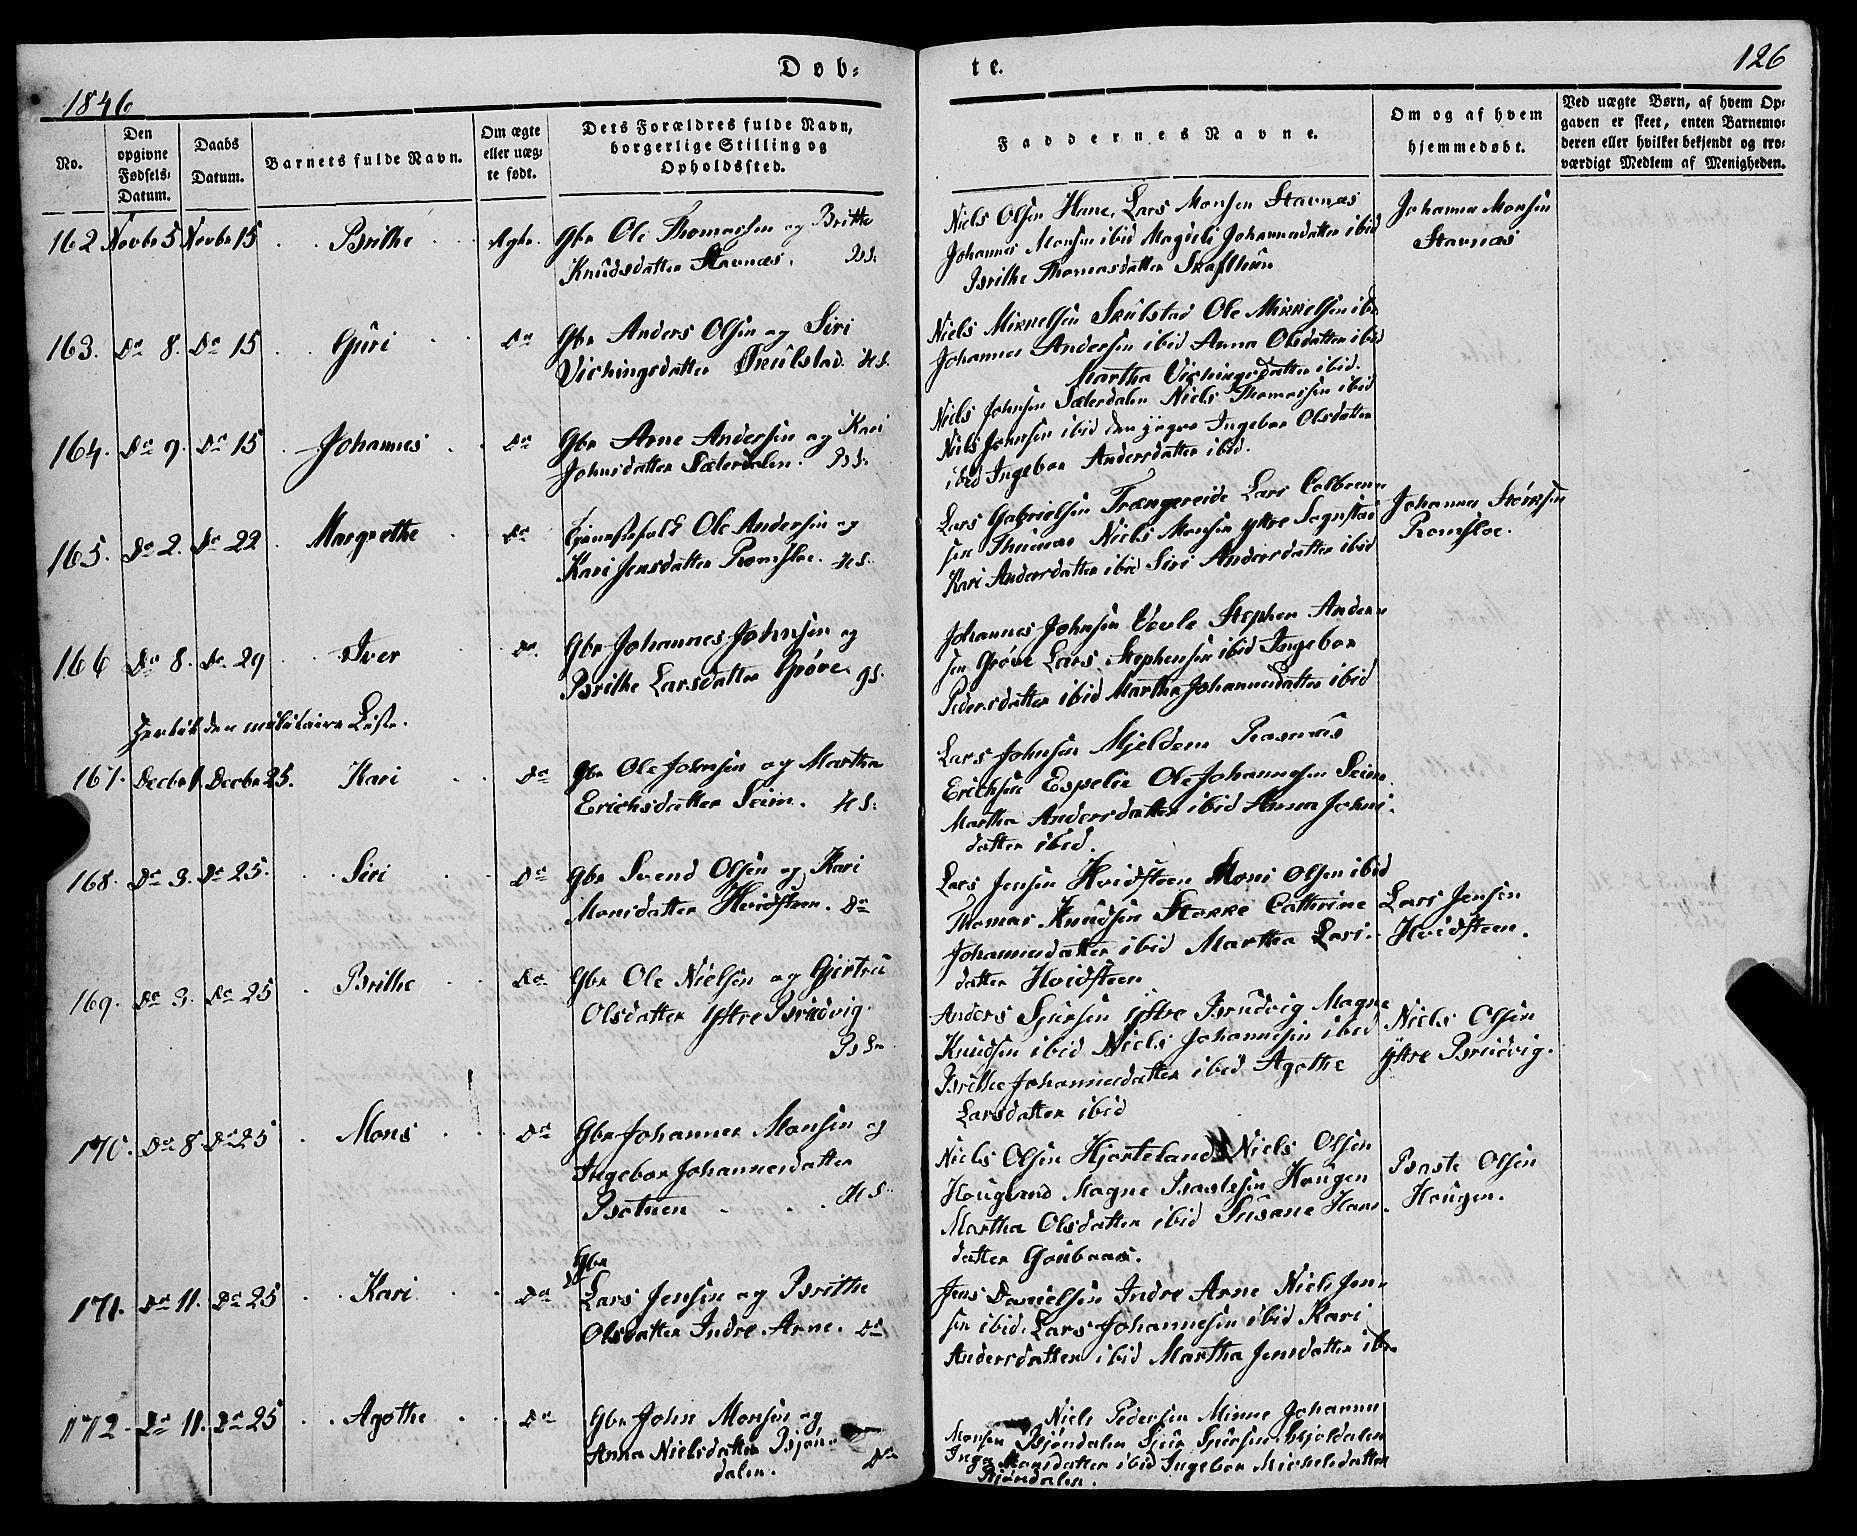 Døb-
te.
126
1846
No.
Den opgivne Fødsels-Datum.
Daabs Datum.
Barnets fulde Navn.
Om ægte eller uæg-te født.
Dets Forældres fulde Navn, borgerlige Stilling og Opholdssted.
Faddernes Navne.
Om og af hvem hjemmedøbt.
Ved uægte Børn, af hvem Op-gaven er skeet, enten Barnemo-deren eller hvilket bekjendt og tro-værdigt Medlem af Menigheden.
162 Novbr 5 Novbr 15 Brithe Ægte. Gbr Ole Thomassen og Britte
Knudsdatter Stavnæs.
Niels Olsen Hane, Lars Monsen Stavnæs
Johannes Monsen ibid Magdeli Johannesdatter ibid
Brithe Thomasdatter Skafthun
Johannes Monsen
Stavnæs
163. Do 8. Do 15 Guri Do Gbr Anders Olsen og Siri
Vichingsdatter Skulstad. HS.
Niels Mikkelsen Skulstad Ole Mikkelsen ibid
Johannes Andersen ibid Anna Olsdatter ibid
Martha Vichingsdatter ibid.
164. Do 9. Do 15 Johannes Do Gbr Arne Andersen og Kari
Johnsdatter Sæterdalen.
Niels Johnsen Sæterdalen Niels Thomassen ibid
Niels Johnsen ibid den yngre Ingebor Olsdatter
ibid Ingebor Andersdatter ibid.
165. Do 2. Do 22 Margrethe Do Tjenestefolk Ole Andersen og
Kari Jensdatter Romsloe. HS.
Lars Gabrielsen Trængereide Lars Colbeen-
sen Thunæs Niels Monsen ytre Sognstad
Kari Andersdatter ibid Siri Andersdatter ibid
Johannes
Romsloe.
166 Do 8. Do 29 Iver Do. Gbr Johannes Johnsen og
Brithe Larsdatter Grøve. gS.
Johannes Johnsen Vevle Stephen Ander-
sen Grøve Lars Stephensen ibid Ingebor
Pedersdatter ibid Martha Johannesdatter ibid
Hertil den militaire Liste.
167. Decbr 1. Decbr 25. Kari Do Gbr Ole Johnsen og Martha
Erichsdatter Seim. HS.
Lars Johnsen Mjeldem Rasmus
Erichsen Espelie Ole Johannesen Seim
Martha Andersdatter ibid Anna Johns-
datter ibid.
168. Do 3. Do 25. Siri Do Gbr Svend Olsen og Kari
Monsdatter Hvidsteen. Do
Lars Jensen Hvidsteen Mons Olsen ibid
Thomas Knudsen Stokke Cathrine
Johannesdatter ibid Martha Lars-
datter Hvidsteen
Lars Jensen
Hvidsteen.
169. Do 3. Do 25 Brithe Do Gbr Ole Nielsen og Gjertru
Olsdatter ytre Brudvig.
Anders Sjursen ytre Brudvig Magne
Knudsen ibid Niels Johannesen ibid
Brithe Johannesdatter ibid Agothe
Larsdatter ibid
Niels Olsen
ytre Brudvig.
170. Do 8 Do 25 Mons Do Gbr Johannes Monsen og
Ingebor Johannesdatter
Botnen HS.
Niels Olsen Hjorteland Niels Olsen
Hougland Magne Baastesen Hougen
Martha Olsdatter ibid Susane Hans-
datter
Baste Olsen
Hougen.
171. Do 11. Do 25 Kari Do Gbr
Lars Jensen og Brithe
Olsdatter Indre Arne. Do
Jens Danielsen Indre Arne Niels Jen-
sen ibid. Lars Johannesen ibid Kari
Andersdatter ibid Martha Jensdatter ibid
172 Do 11. Do 25 Agothe Do Gbr John Monsen og
Anna Nielsdatter Bjørn-
dalen. Do
Niels Pedersen Minne Johannes
Monsen Bjørndalen Sjur Sjursen
Inga Monsdatter ibid Ingebor Michelsdatter
Bjørndalen.